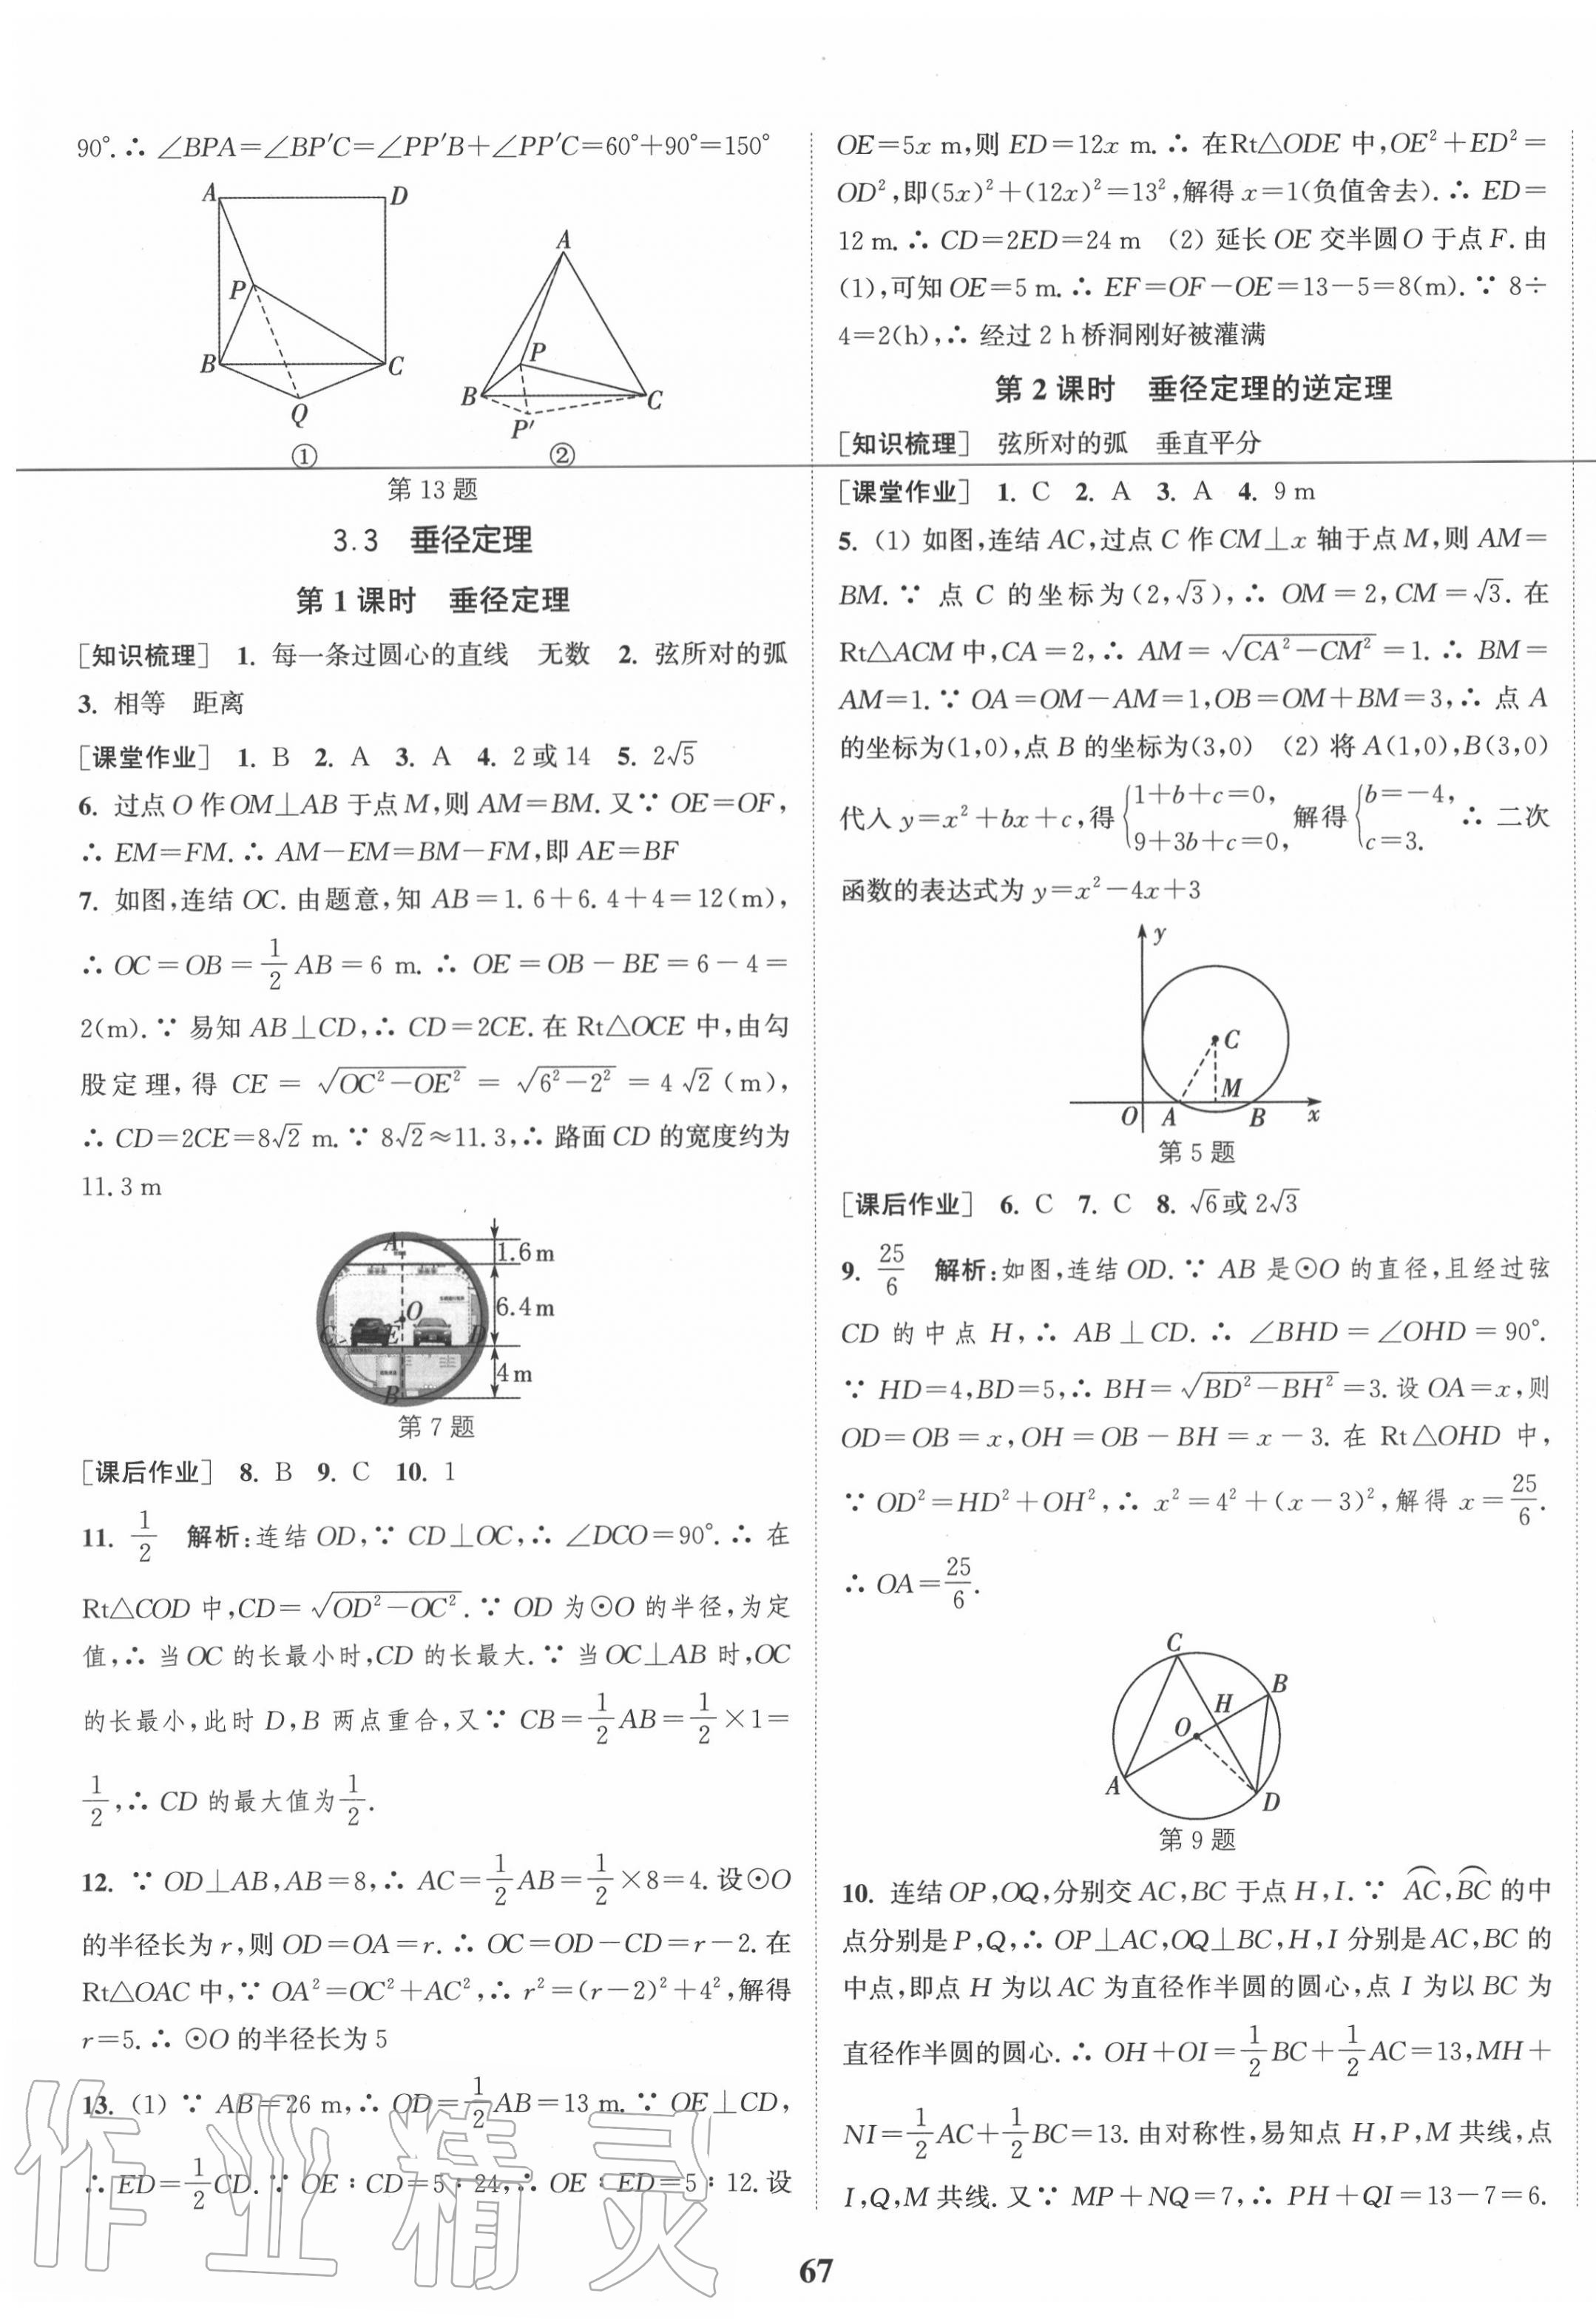 90°.∴ ∠BPA=∠BP′C=∠PP′B+∠PP′C=60°+90°=150°
A D
P
B C
Q
①
A
P
B C
P′
②
第 13 题
3.3 垂径定理
第 1 课时 垂径定理
[知识梳理] 1. 每一条过圆心的直线 无数 2. 弦所对的弧
3. 相等 距离
[课堂作业] 1. B 2. A 3. A 4. 2或14 5. 2√5
6. 过点O作OM⊥AB于点M,则AM=BM.又∵ OE=OF,
∴ EM=FM.∴ AM-EM=BM-FM,即AE=BF
7. 如图,连结OC.由题意,知AB=1.6+6.4+4=12(m),
∴ OC=OB=1/2 AB=6 m.∴ OE=OB-BE=6-4=
2(m).∵ 易知AB⊥CD,∴ CD=2CE.在Rt△OCE中,由勾
股定理,得CE=√(OC²-OE²)=√(6²-2²)=4√2(m),
∴ CD=2CE=8√2 m.∵ 8√2≈11.3,∴ 路面CD的宽度约为
11.3 m
A
1.6 m
O
6.4 m
C E D
4 m
B
第 7 题
[课后作业] 8. B 9. C 10. 1
11. 1/2 解析:连结OD,∵ CD⊥OC,∴ ∠DCO=90°.∴ 在
Rt△COD中,CD=√(OD²-OC²).∵ OD为⊙O的半径,为定
值,∴ 当OC的长最小时,CD的长最大.∵ 当OC⊥AB时,OC
的长最小,此时D,B两点重合,又∵ CB=1/2 AB=1/2×1=
1/2,∴ CD的最大值为1/2.
12. ∵ OD⊥AB,AB=8,∴ AC=1/2 AB=1/2×8=4.设⊙O
的半径长为r,则OD=OA=r.∴ OC=OD-CD=r-2.在
Rt△OAC中,∵ OA²=OC²+AC²,∴ r²=(r-2)²+4²,解得
r=5.∴ ⊙O的半径长为5
13. (1) ∵ AB=26 m,∴ OD=1/2 AB=13 m.∵ OE⊥CD,
∴ ED=1/2 CD.∵ OE∶CD=5∶24,∴ OE∶ED=5∶12.设
OE=5x m,则ED=12x m.∴ 在Rt△ODE中,OE²+ED²=
OD²,即(5x)²+(12x)²=13²,解得x=1(负值舍去).∴ ED=
12 m.∴ CD=2ED=24 m (2) 延长OE交半圆O于点F.由
(1),可知OE=5 m.∴ EF=OF-OE=13-5=8(m).∵ 8÷
4=2(h),∴ 经过2 h桥洞刚好被灌满
第 2 课时 垂径定理的逆定理
[知识梳理] 弦所对的弧 垂直平分
[课堂作业] 1. C 2. A 3. A 4. 9 m
5. (1) 如图,连结AC,过点C作CM⊥x轴于点M,则AM=
BM.∵ 点C的坐标为(2,√3),∴ OM=2,CM=√3.在
Rt△ACM中,CA=2,∴ AM=√(CA²-CM²)=1.∴ BM=
AM=1.∵ OA=OM-AM=1,OB=OM+BM=3,∴ 点A
的坐标为(1,0),点B的坐标为(3,0) (2) 将A(1,0),B(3,0)
代入y=x²+bx+c,得{1+b+c=0, 9+3b+c=0, 解得{b=-4, c=3. ∴ 二次
函数的表达式为y=x²-4x+3
y
C
M
O A B x
第 5 题
[课后作业] 6. C 7. C 8. √6或2√3
9. 25/6 解析:如图,连结OD.∵ AB是⊙O的直径,且经过弦
CD的中点H,∴ AB⊥CD.∴ ∠BHD=∠OHD=90°.
∵ HD=4,BD=5,∴ BH=√(BD²-BH²)=3.设OA=x,则
OD=OB=x,OH=OB-BH=x-3.在Rt△OHD中,
∵ OD²=HD²+OH²,∴ x²=4²+(x-3)²,解得x=25/6.
∴ OA=25/6.
C
B
H
O
A
D
第 9 题
10. 连结OP,OQ,分别交AC,BC于点H,I.∵ ⌒AC,⌒BC的中
点分别是P,Q,∴ OP⊥AC,OQ⊥BC,H,I分别是AC,BC的
中点,即点H为以AC为直径作半圆的圆心,点I为以BC为
直径作半圆的圆心.∴ OH+OI=1/2 BC+1/2 AC=13,MH+
NI=1/2 AC+1/2 BC=13.由对称性,易知点H,P,M共线,点
I,Q,M共线.又∵ MP+NQ=7,∴ PH+QI=13-7=6.
作业精灵
67